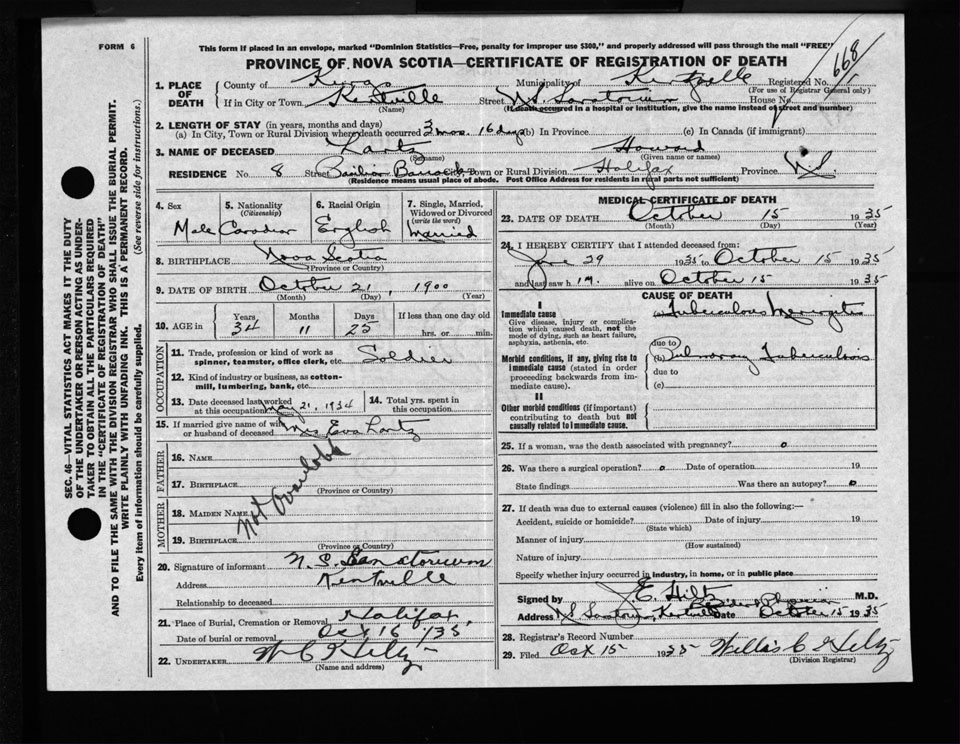 FORM 6
This form if placed in an envelope, marked "Dominion Statistics—Free, penalty for improper use $300," and properly addressed will pass through the mail "FREE"
668
PROVINCE OF NOVA SCOTIA—CERTIFICATE OF REGISTRATION OF DEATH
1. PLACE OF DEATH
County of Kings Municipality of Kentville Registered No.
(For use of Registrar General only)
If in City or Town Kentville Street N.S. Sanatorium House No.
(Name) (If death occurred in a hospital or institution, give the name instead of street and number)
2. LENGTH OF STAY (in years, months and days)
(a) In City, Town or Rural Division where death occurred 3 mos. 16 days (b) In Province (c) In Canada (if immigrant)
3. NAME OF DECEASED Lantz Howard
(Surname) (Given name or names)
RESIDENCE No. 8 Street Pavilion Barracks City, Town or Rural Division Halifax Province NS
(Residence means usual place of abode. Post Office Address for residents in rural parts not sufficient)
SEC. 46—VITAL STATISTICS ACT MAKES IT THE DUTY
OF THE UNDERTAKER OR PERSON ACTING AS UNDER-
TAKER TO OBTAIN ALL THE PARTICULARS REQUIRED
IN THE "CERTIFICATE OF REGISTRATION OF DEATH"
AND TO FILE THE SAME WITH THE DIVISION REGISTRAR WHO SHALL ISSUE THE BURIAL PERMIT.
WRITE PLAINLY WITH UNFADING INK. THIS IS A PERMANENT RECORD.
Every item of information should be carefully supplied. (See reverse side for instructions.)
4. Sex 5. Nationality 6. Racial Origin 7. Single, Married,
(Citizenship) Widowed or Divorced
(write the word)
Male Canadian English Married
8. BIRTHPLACE Nova Scotia
(Province or Country)
9. DATE OF BIRTH October 21, 1900
(Month) (Day) (Year)
10. AGE in Years Months Days If less than one day old
34 11 25 hrs. or min.
OCCUPATION
11. Trade, profession or kind of work as
spinner, teamster, office clerk, etc. Soldier
12. Kind of industry or business, as cotton-
mill, lumbering, bank, etc.
13. Date deceased last worked 14. Total yrs. spent in
at this occupation May 21, 1934 this occupation
15. If married give name of wife
or husband of deceased Mrs Eva Lantz
FATHER
16. NAME
17. BIRTHPLACE
(Province or Country)
MOTHER
18. MAIDEN NAME
19. BIRTHPLACE
(Province or Country)
Not Available
20. Signature of informant N. S. Sanatorium
Address Kentville
Relationship to deceased
21. Place of Burial, Cremation or Removal Halifax
Date of burial or removal Oct 16 /35
22. UNDERTAKER W C Hiltz
(Name and address)
MEDICAL CERTIFICATE OF DEATH
23. DATE OF DEATH October 15 1935
(Month) (Day) (Year)
24. I HEREBY CERTIFY that I attended deceased from:
June 29 1935 to October 15 1935
and last saw him alive on October 15 1935
CAUSE OF DEATH
I
Immediate cause (a) Tuberculous Meningitis
Give disease, injury or complica-
tion which caused death, not the
mode of dying, such as heart failure,
asphyxia, asthenia, etc.
due to
Morbid conditions, if any, giving rise to
immediate cause (stated in order
proceeding backwards from im-
mediate cause).
(b) Pulmonary Tuberculosis
due to
(c)
II
Other morbid conditions (if important)
contributing to death but not
causally related to immediate cause.
25. If a woman, was the death associated with pregnancy? o
26. Was there a surgical operation? o Date of operation 19
State findings Was there an autopsy? o
27. If death was due to external causes (violence) fill in also the following:—
Accident, suicide or homicide? Date of injury 19
(State which)
Manner of injury
(How sustained)
Nature of injury
Specify whether injury occurred in industry, in home, or in public place
Signed by J. E. Hiltz M.D.
Address NS Sanatorium, Kentville Date October 15 1935
28. Registrar's Record Number
29. Filed Oct 15 1935 Willis C Hiltz
(Division Registrar)